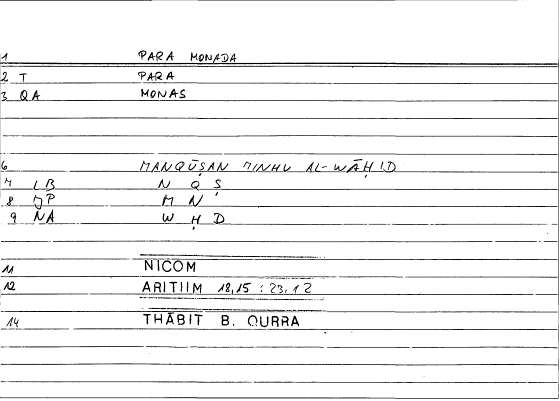 1 PARA MONADA
2 T PARA
3 QA MONAS
6 MANQŪṢAN MINHU AL-WĀḤID
7 IB N Q Ṣ
8 JP M N
9 NA W Ḥ D
11 NICOM
12 ARITIIM 18,15 : 23,12
14 THĀBIT B. QURRA